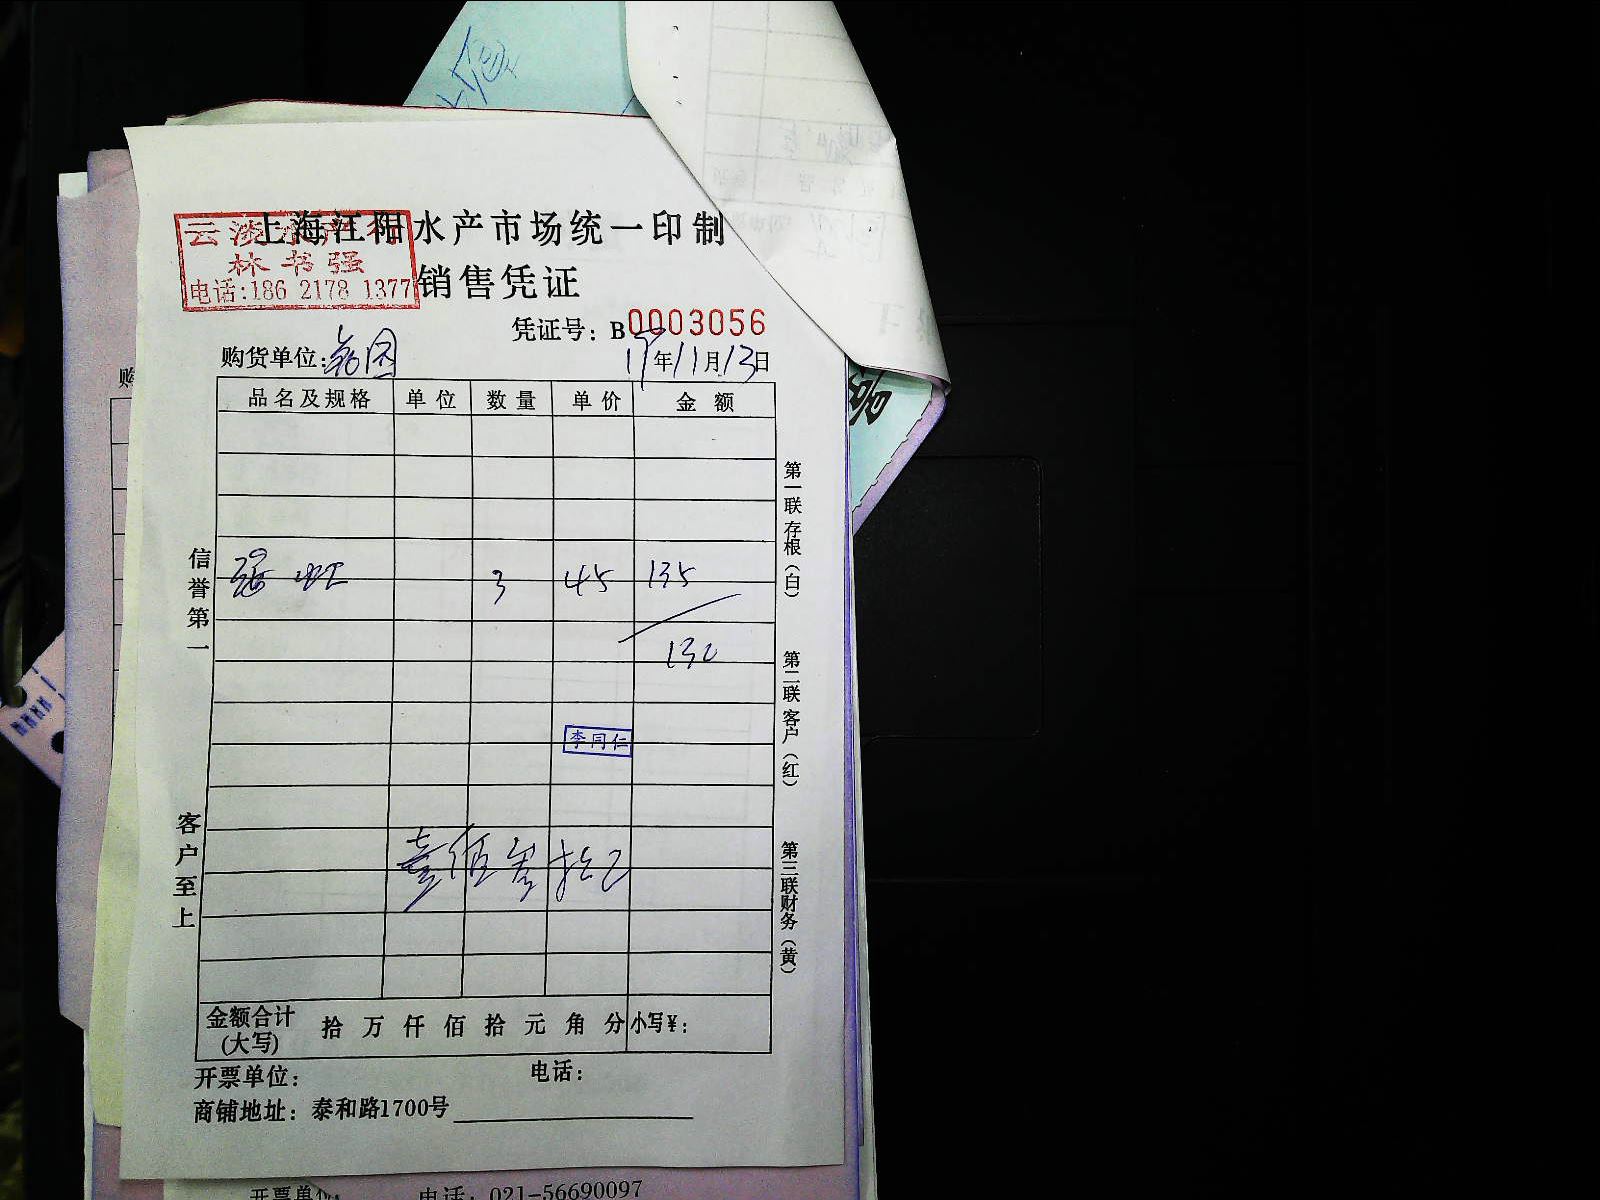 上海江阳水产市场统一印制
云涛水产行
林书强
电话:186 2178 1377
销售凭证
凭证号: B0003056
购货单位:
19年11月13日
品名及规格 单位 数量 单价 金额
虾 3 45 135
130
李同仁
壹佰叁拾
金额合计(大写) 拾 万 仟 佰 拾 元 角 分 小写¥:
开票单位: 电话:
商铺地址: 泰和路1700号
信誉第一
客户至上
第一联存根(白)
第二联客户(红)
第三联财务(黄)
购
开票单位: 电话: 021-56690097